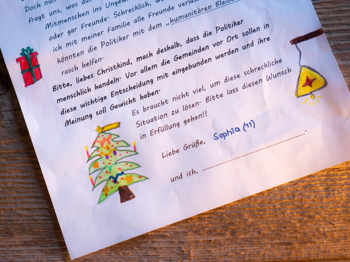 Doch nun
fragt uns, was da
Mitmenschen im Ungew
oder gar Freunde: Schrecklich, w
ich mit meiner Familie alle Freunde verla
könnten die Politiker mit dem „humanitären Bleib
rasch helfen.
Bitte, liebes Christkind, mach deshalb, dass die Politiker
menschlich handeln. Vor allem die Gemeinden vor Ort sollen in
diese wichtige Entscheidung mit eingebunden werden und ihre
Meinung soll Gewicht haben.
Es braucht nicht viel, um diese schreckliche
Situation zu lösen. Bitte lass diesen Wunsch
in Erfüllung gehen!!
Liebe Grüße, Sophia (11)
und ich,